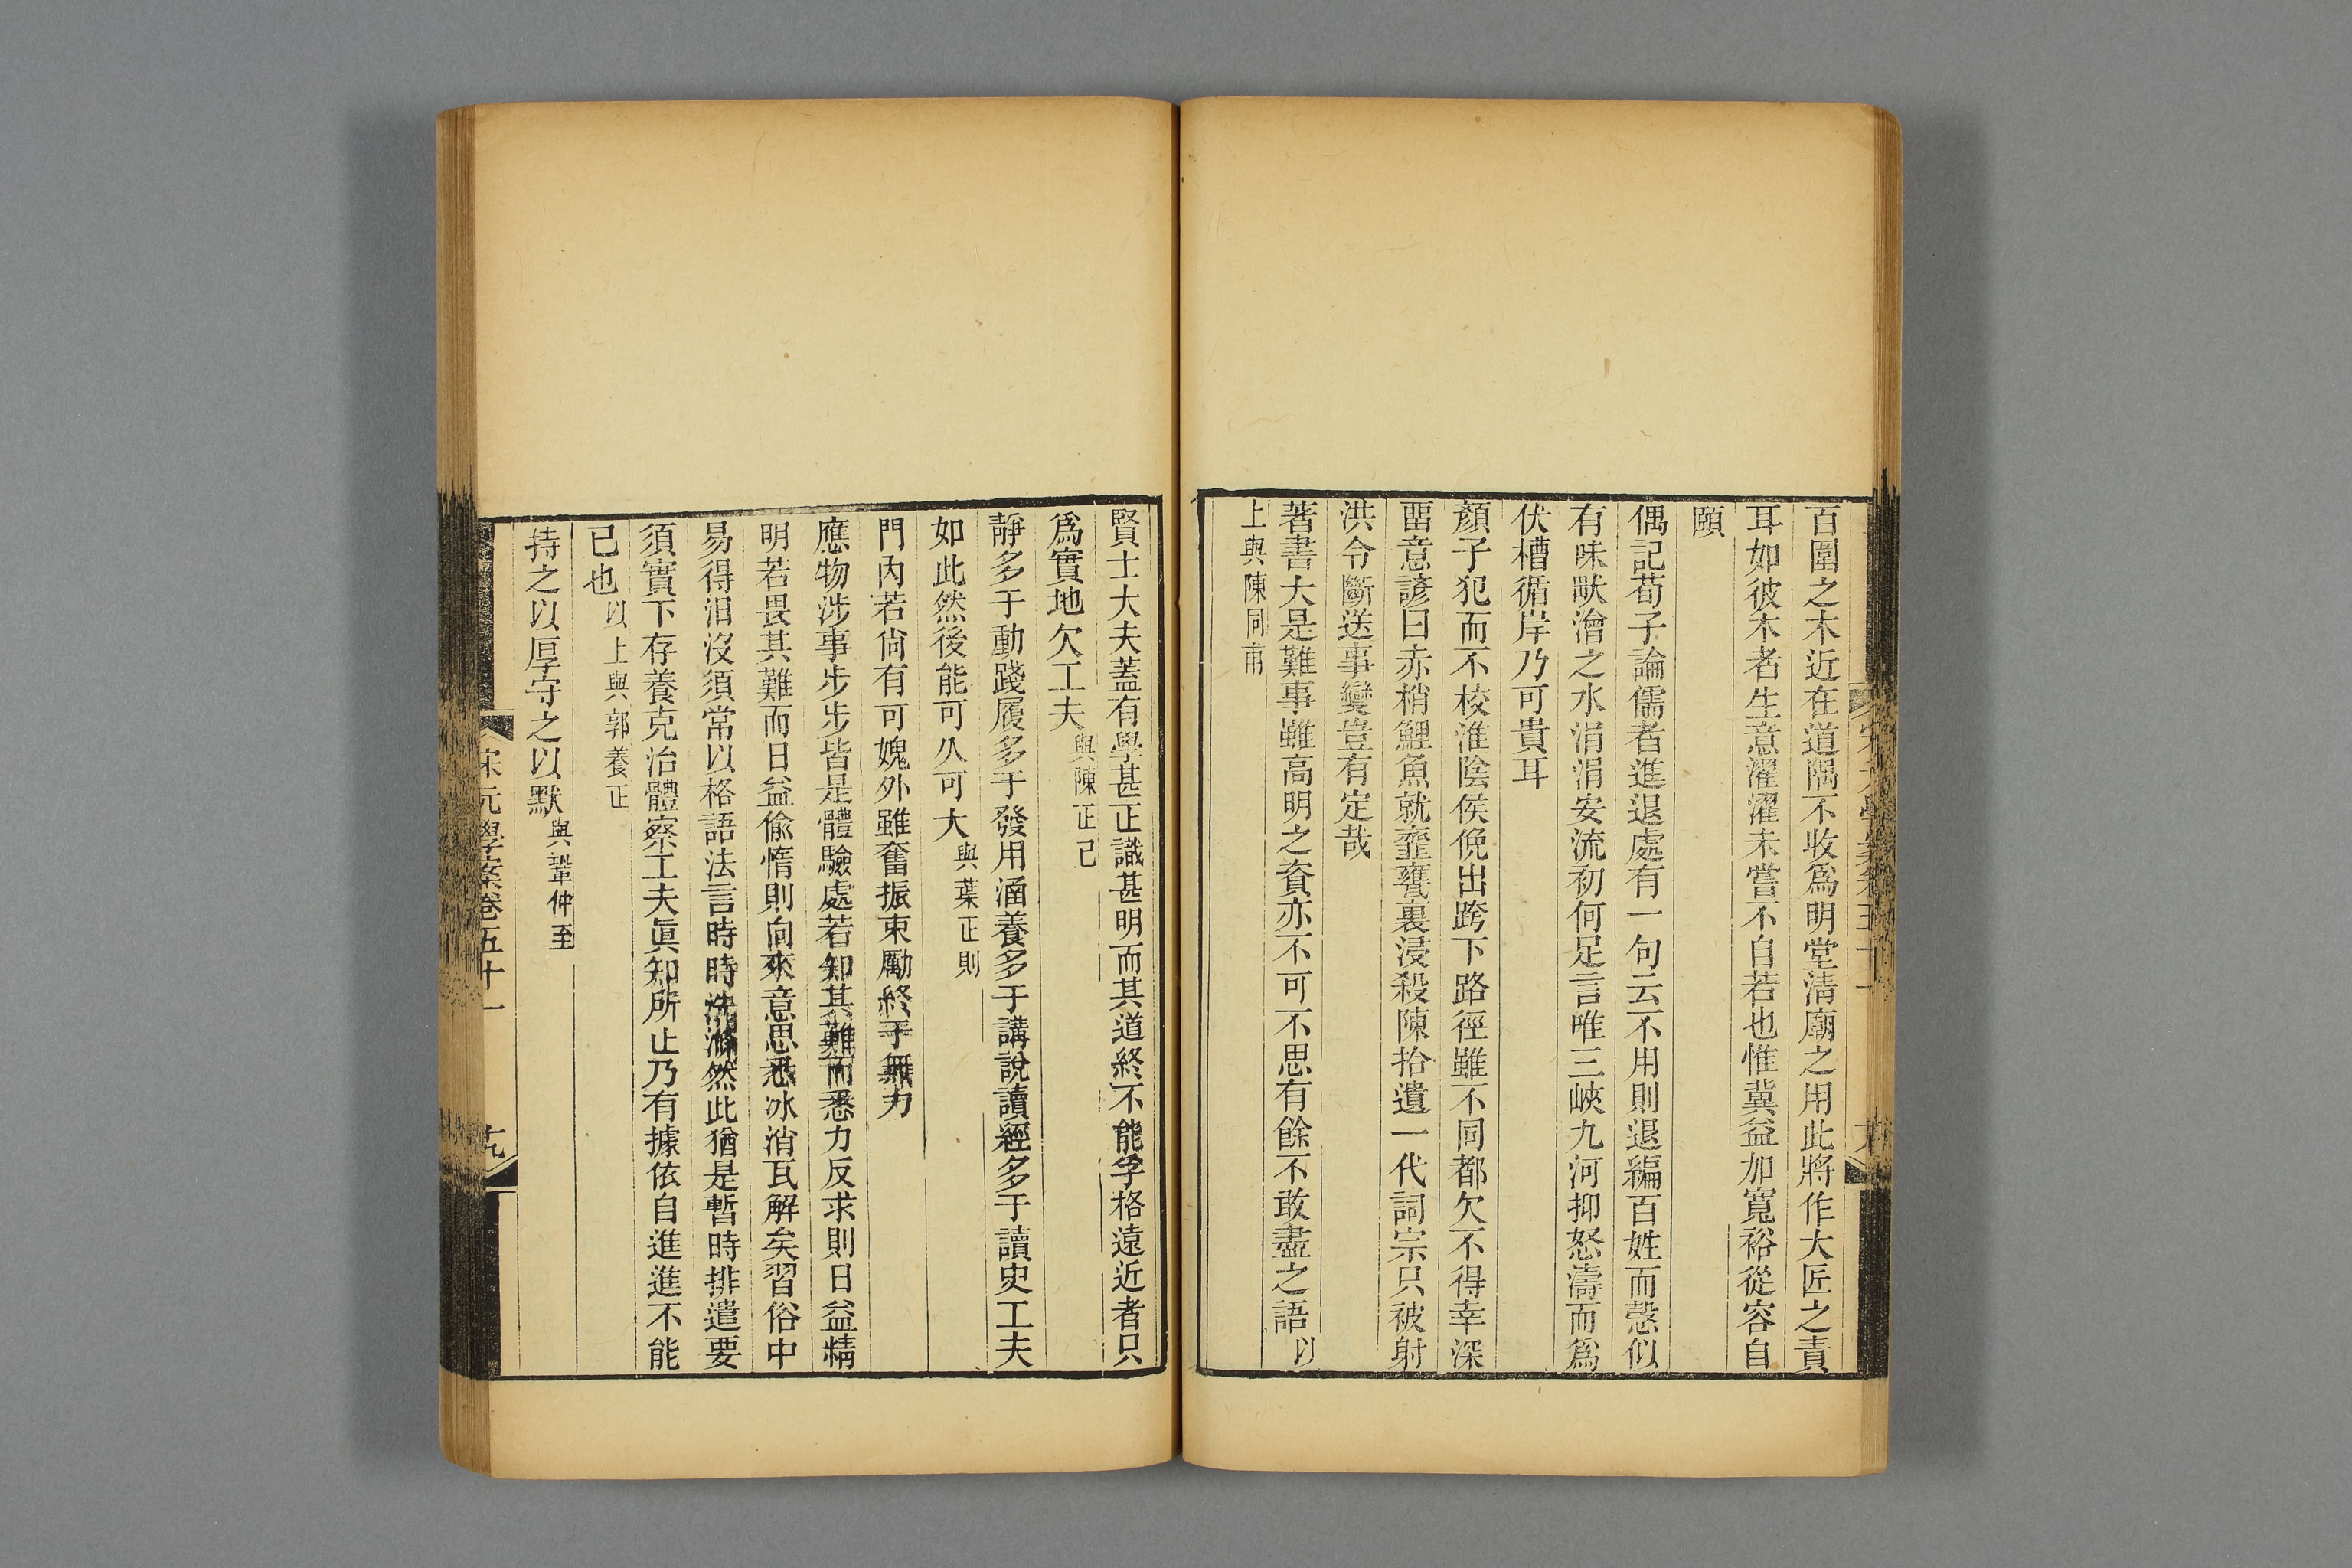 百圍之木近在道隅不收爲明堂淸廟之用此將作大匠之責
耳如彼木者生意濯濯未嘗不自若也惟冀益加寬裕從容自
頤
偶記荀子論儒者進退處有一句云不用則退編百姓而愨似
有味獸澮之水涓涓安流初何足言唯三峽九河抑怒濤而爲
伏槽循岸乃可貴耳
顏子犯而不校淮陰侯俛出跨下路徑雖不同都欠不得幸深
畱意諺曰赤梢鯉魚就虀甕裏浸殺陳拾遺一代詞宗只被射
洪令斷送事變豈有定哉
著書大是難事雖高明之資亦不可不思有餘不敢盡之語以
上與陳同甫
賢士大夫蓋有學甚正識甚明而其道終不能孚格遠近者只
爲實地欠工夫與陳正己
靜多于動踐履多于發用涵養多于講說讀經多于讀史工夫
如此然後能可久可大與葉正則
門內若尙有可媿外雖奮振東勵終乎無力
應物涉事步步皆是體驗處若知其難而悉力反求則日益精
明若畏其難而日益偸惰則向來意思悉冰消瓦解矣習俗中
易得汨沒須常以格語法言時時洗滌然此猶是暫時排遣要
須實下存養克治體察工夫眞知所止乃有據依自進進不能
已也以上與郭養正
持之以厚守之以默與鞏仲至
宋元學案卷五十一
十九